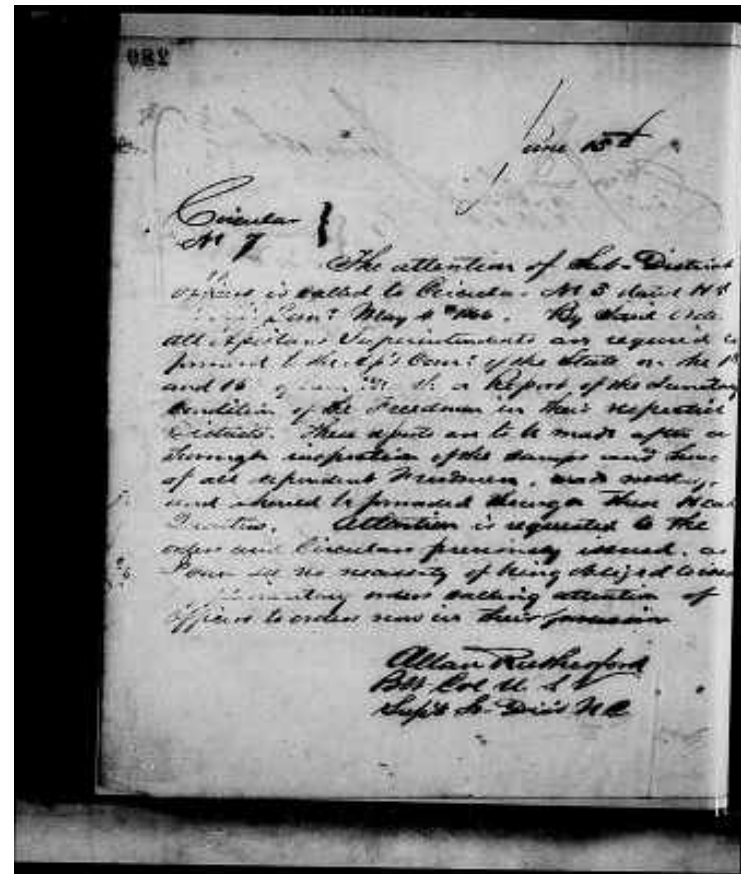 280
June 15th
Circular
No 7
The attention of Sub-District
officers is called to Circular No 5 dated Hd
May 4th 1866. By said Order
all Assistant Superintendents are required to
forward to the Ap't Com'r of the State on the 1st
and 15 a Report of the Sanitary
Condition of the Freedmen in their respective
Districts. These reports are to be made after a
thorough inspection of the camps and homes
of all dependent freedmen, made
and should be forwarded through these Head
Quarters. Attention is requested to the
orders and Circulars previously issued, as
I can see no necessity of being obliged to issue
orders calling attention of
officers to orders now in their possession
Allan Rutherford
Bvt Col U. S. V
Sup't So. Dist N C